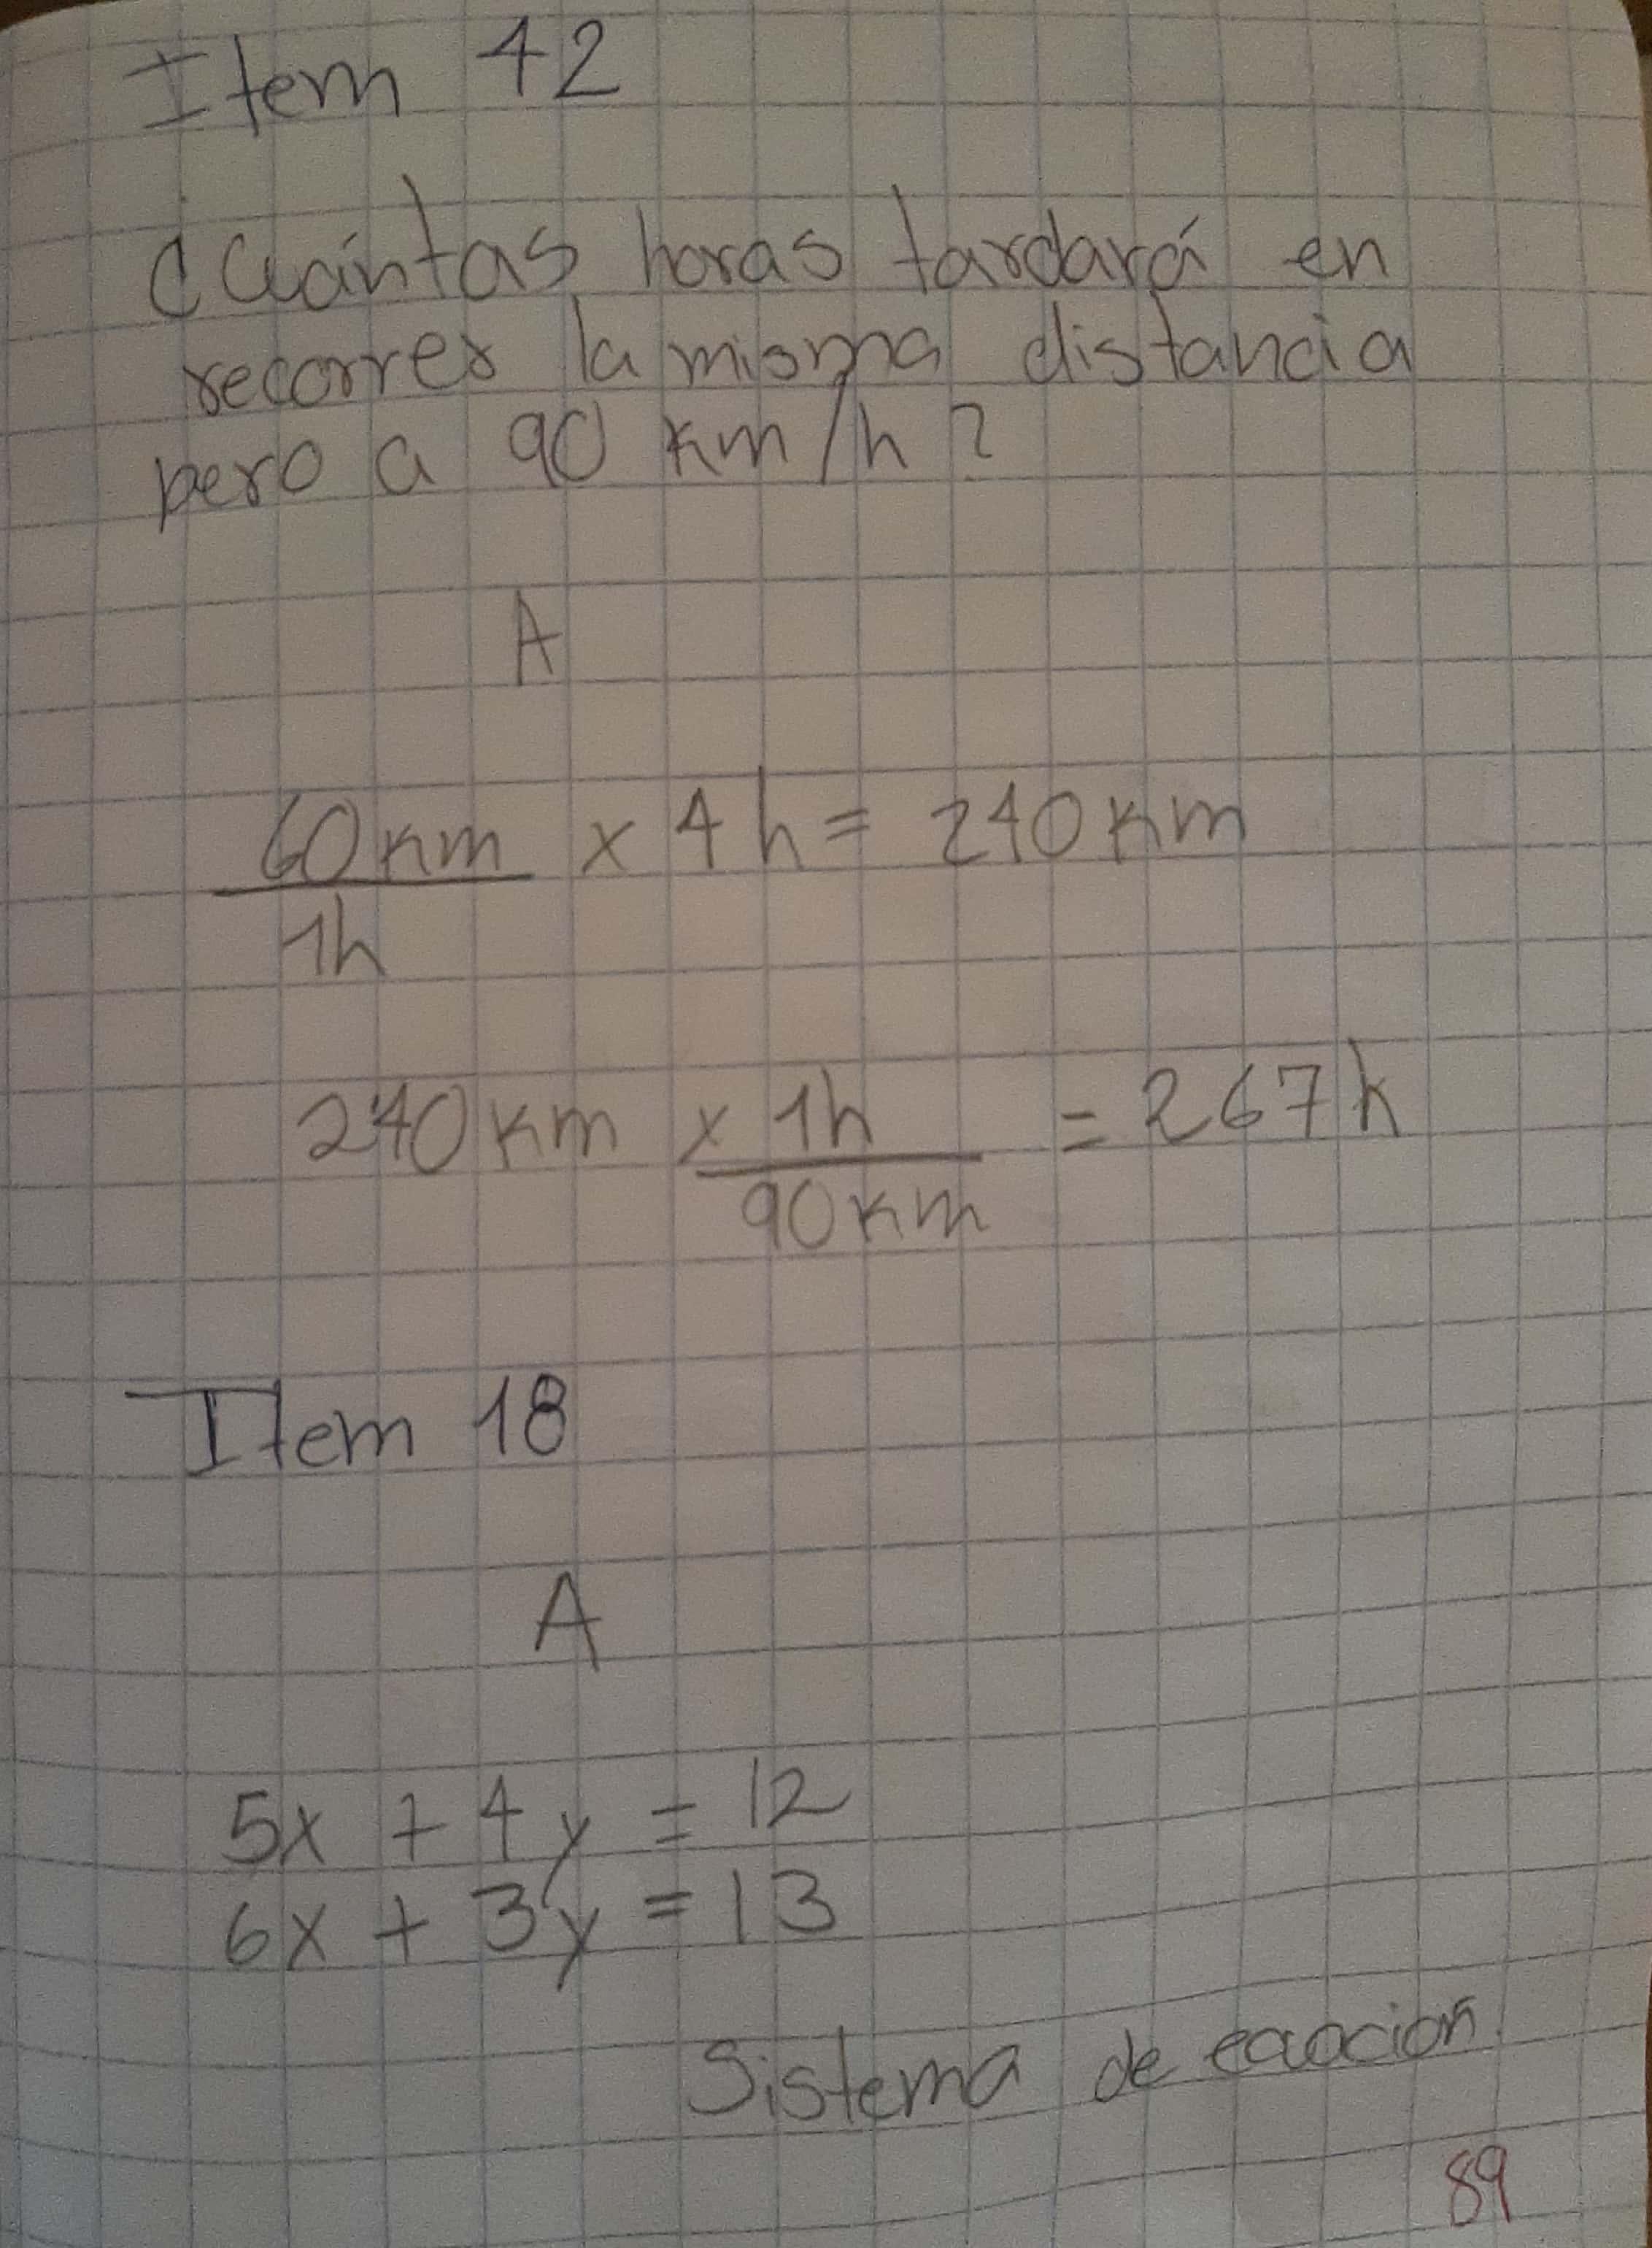 Item 42
¿Cuántas horas tardará en
recorrer la misma distancia
pero a 90 km/h?
A
60 km x 4 h = 240 km
1h
240 km x 1h = 267 h
90 km
Item 18
A
5x + 4y = 12
6x + 3y = 13
Sistema de ecuacion
89